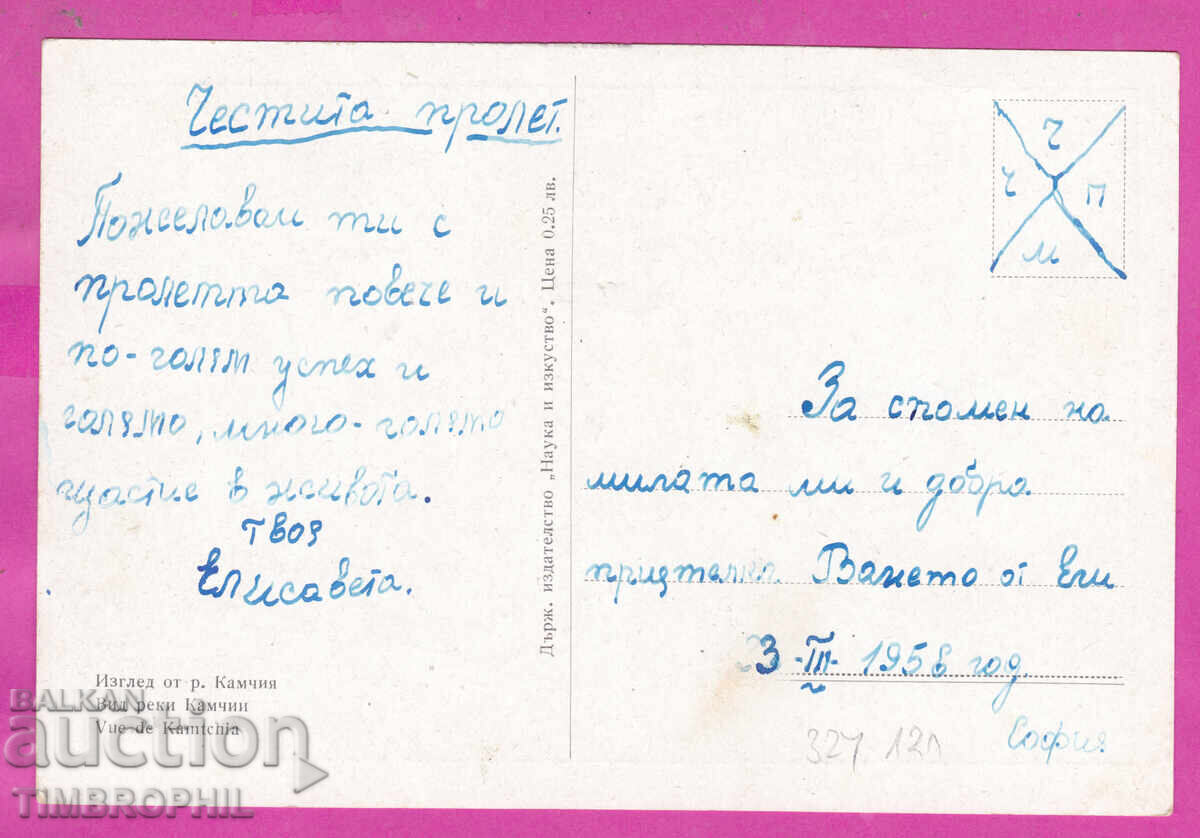 Честита пролет.
Пожелавам ти с
пролетта повече и
по-голям успех и
голямо, много-голямо
щастие в живота.
Твоя
Елисавета.
Изглед от р. Камчия
Вид реки Камчии
Vue de Kamtchia
Държ. издателство „Наука и изкуство“. Цена 0.25 лв.
Ч
Ч П
М
За спомен на
милата ми и добра
приятелка Ването от Ели
3-III-1958 год.
София
327 12л
BALKAN
auction
TIMBROPHIL